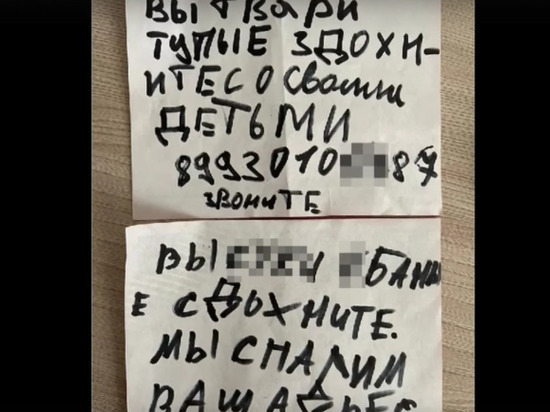 ВЫ ТВАРИ
ТУПЫЕ ЗДОХН-
ИТЕ СО СВОИМИ
ДЕТЬМИ
8993010 87
ЗВОНИТЕ
ВЫ БАНЫ
Е СДОХНИТЕ.
МЫ СПАЛИМ